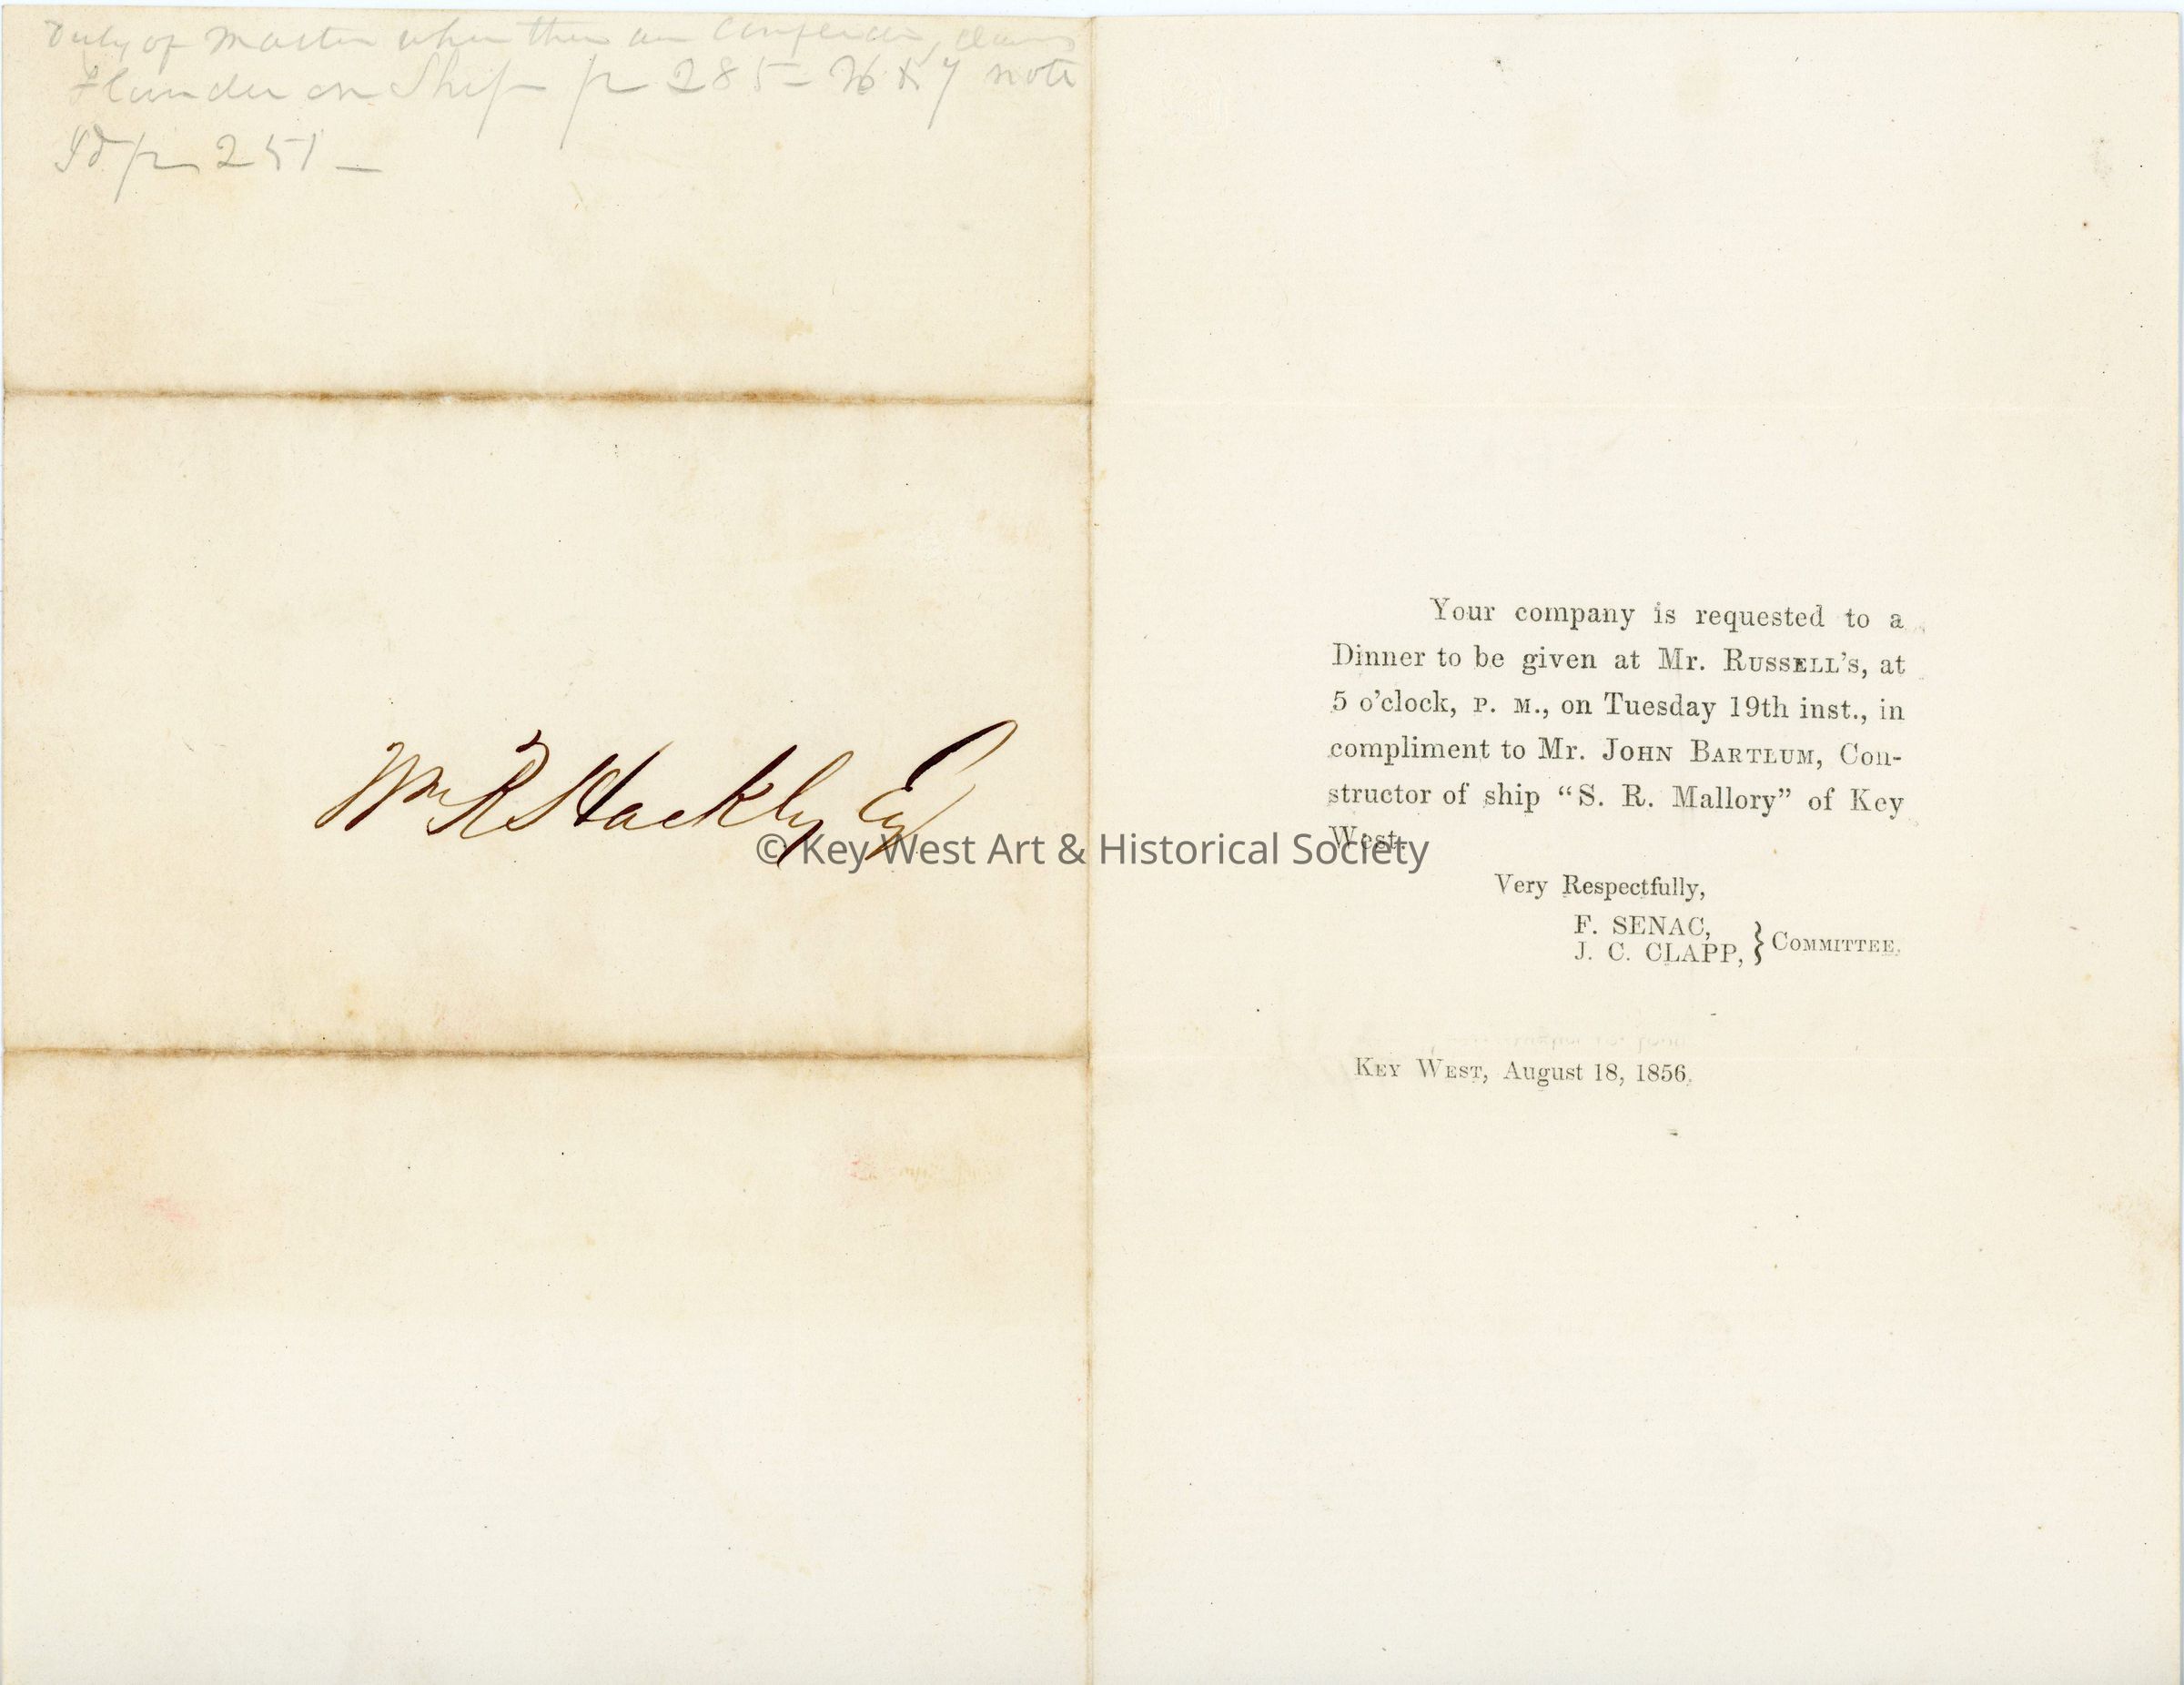 Duly of Master when there are conflicting claims
Flander on Ship p 285-6 & 7 note
Id p 251 -
Wm R Hackly Esq
Your company is requested to a
Dinner to be given at Mr. RUSSELL'S, at
5 o'clock, P. M., on Tuesday 19th inst., in
compliment to Mr. JOHN BARTLUM, Con-
structor of ship "S. R. Mallory" of Key
West.
Very Respectfully,
F. SENAC,
J. C. CLAPP, } COMMITTEE.
KEY WEST, August 18, 1856.
© Key West Art & Historical Society